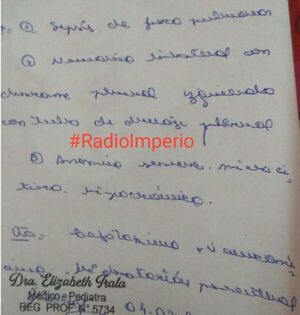 ① Sepsis de foco pulmonar
② Neumonía bilateral con
derrame pleural izquierdo
con tubo de drenaje pleural
#RadioImperio
③ Anemia severa. microci-
tica. hipocrómica.
Tto: Cefotaxima + Vancomi-
cina Hidratación parenteral
Dra. Elizabeth Irala
Médico - Pediatra
REG PROF N° 5734